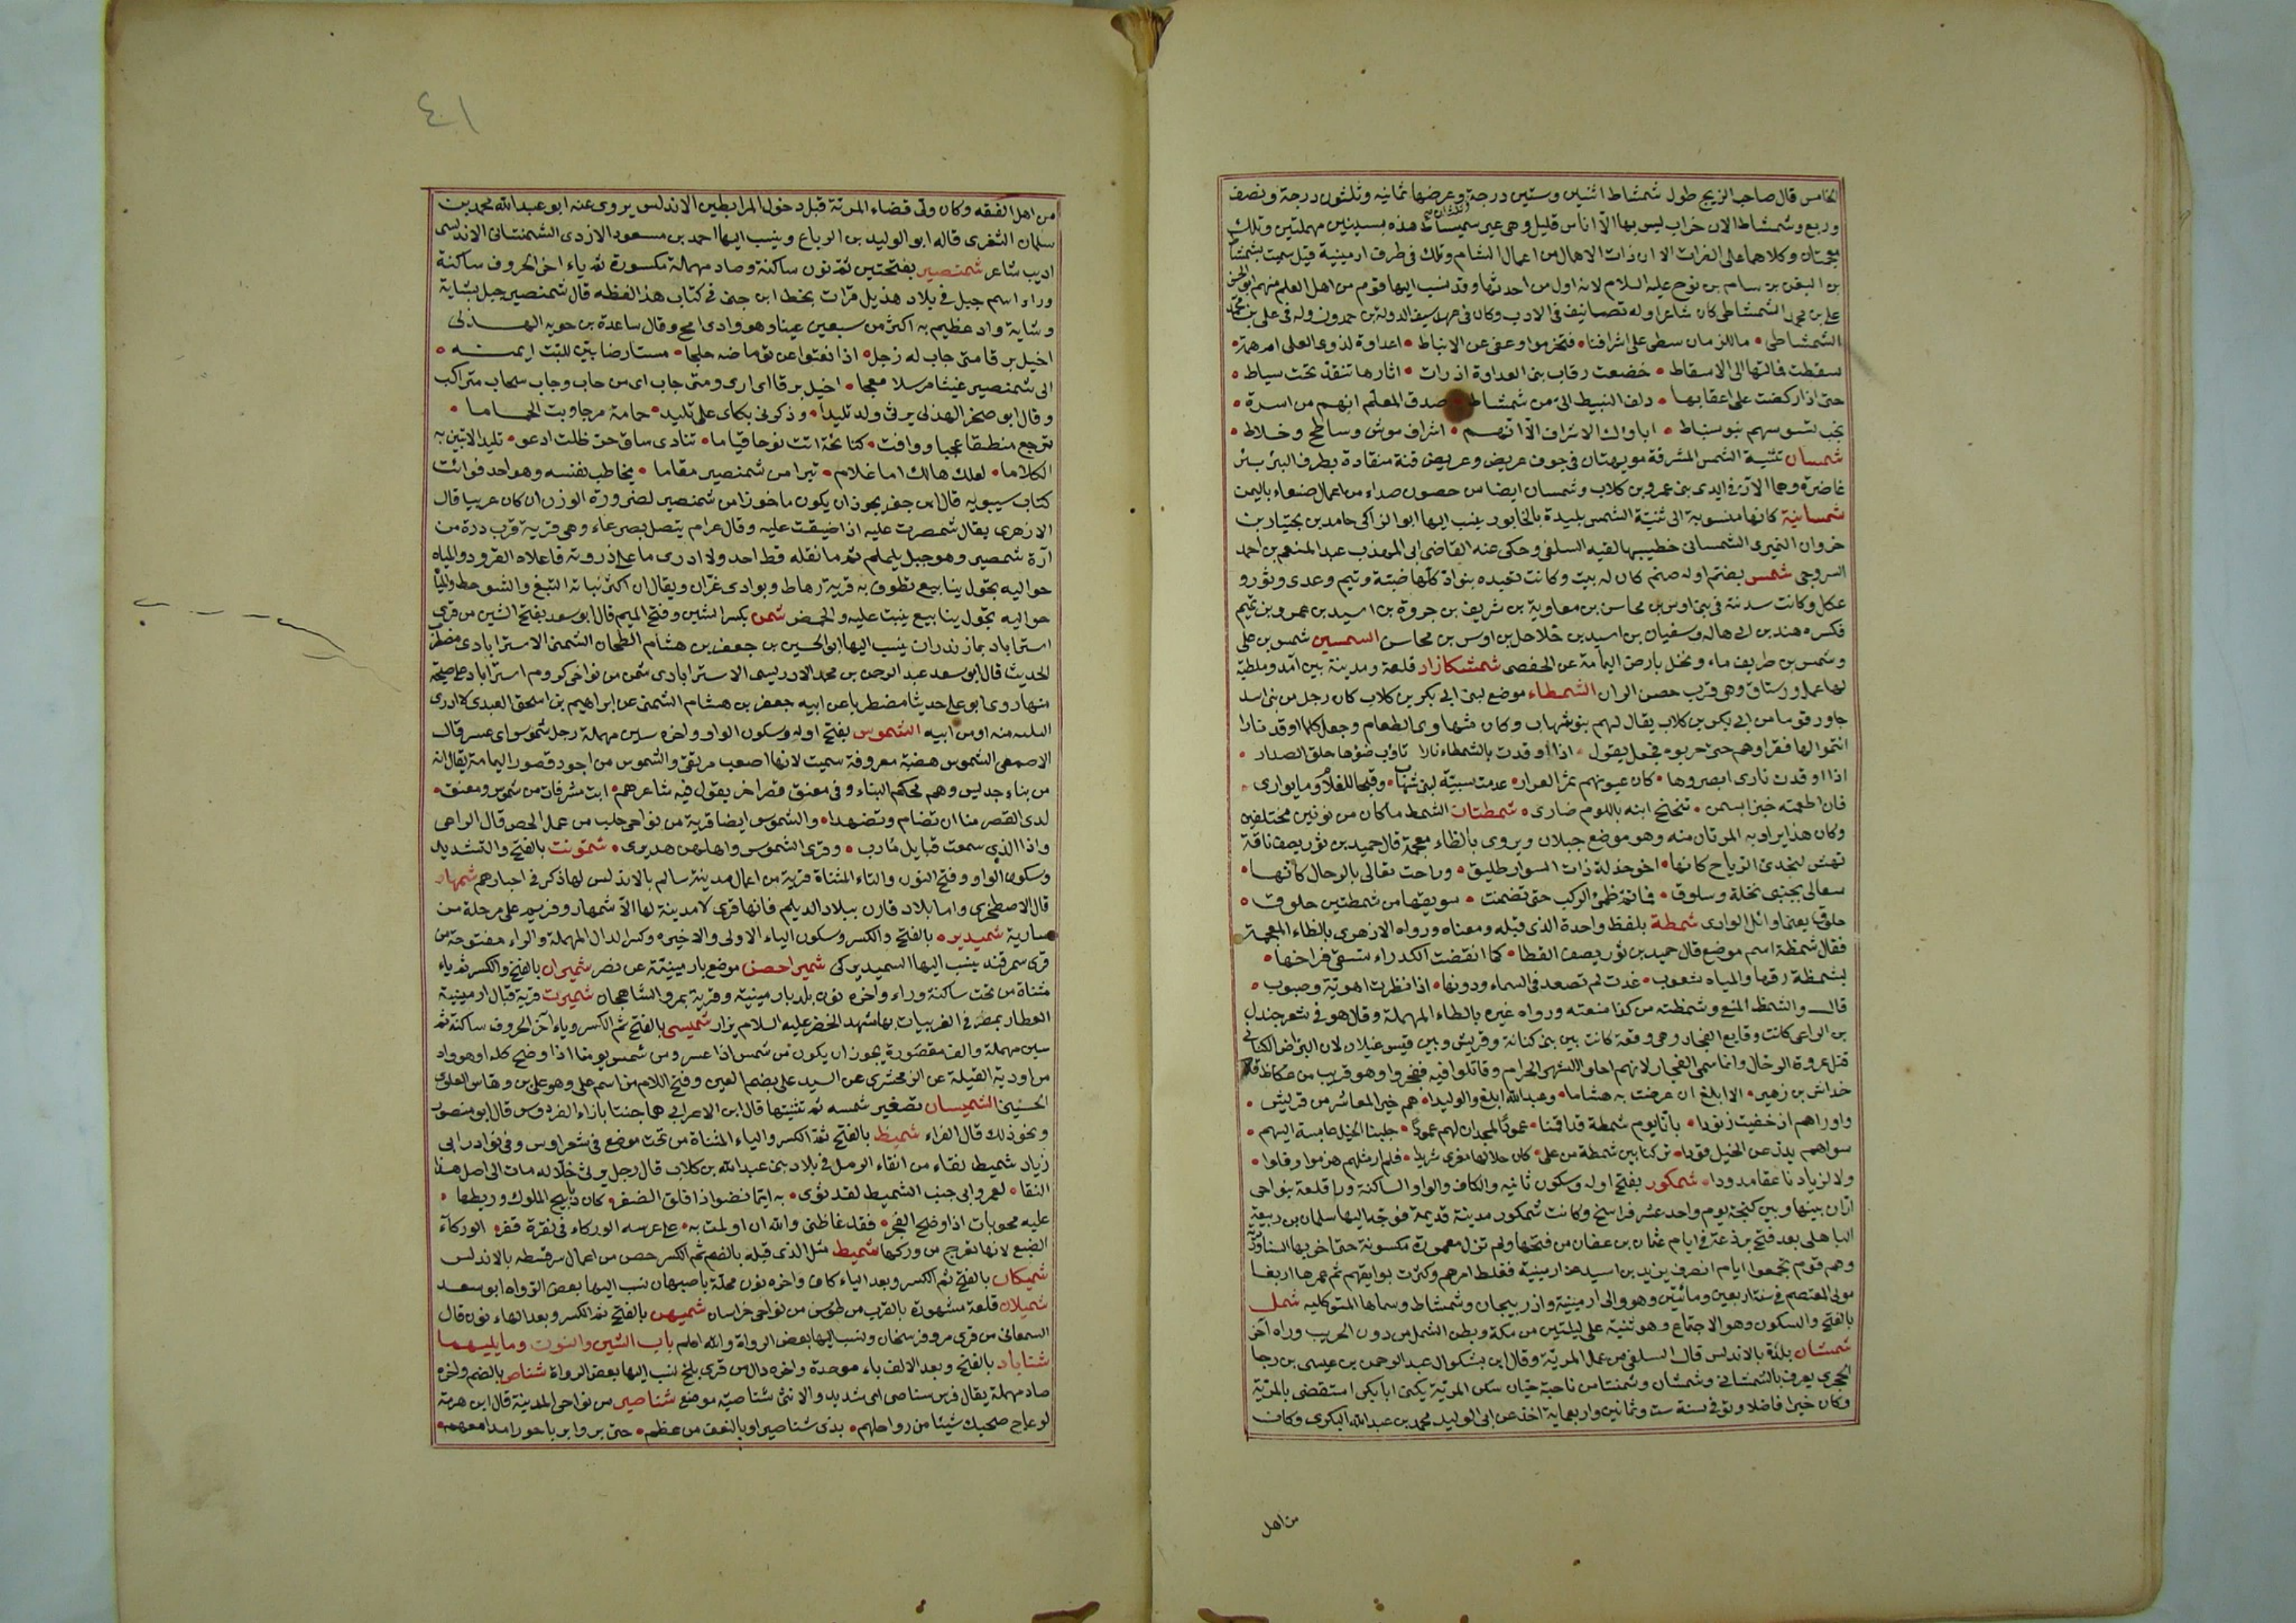 الخامس قال صاحب الزيج طول شمشاط اثنين وستين درجة وعرضها ثمانيه وثلثون درجة ونصف
وربع وشمشاط الان خراب ليس بها الا اناس قليل وهى غير سميساط هذه بسينين مهملتين وتلك
معجمتان وكلاهما على الفرات الا ان ذات الاهمال من اعمال الشام وتلك فى طرف ارمينية قيل سميت بشمشاط
بن اليفن بن سام بن نوح عليه السلام لانه اول من احدثها وقد نسب اليها قوم من اهل العلم منهم ابو الحسن
على بن محمد الشمشاطى كان شاعرا وله تصانيف فى الادب وكان فى عهد سيف الدولة بن حمدون وله فى على بن محمد
الشمشاطى ما للزمان سطى على اشرافنا فتخرموا وعفى عن الانباط اعداوة لذوى العلى ام همة
سقطت فمالتها الى الاسقاط خضعت رقاب بنى العداوة اذ رات اثارها تنقد تحت سياط
حتى اذا ركضت على اعقابها دلف النبيط الى من شمشاط صدق المعلم انهم من اسرة
نجب تسوسهم بنو سنباط اباؤك الاشراف الا انهم اشراف موش وساطح وخلاط
شمسان تثنية الشمس المشرقة مويهتان فى جوف عريض وعريض قنة منقادة بطرف البئر بئر
غاضرة وهما الآن فى ايدى بنى عمرو بن كلاب وشمسان ايضا من حصون صداء من اعمال صنعاء باليمن
شمسانية كانها منسوبة الى تثنية الشمس بليدة بالخابور ينسب اليها ابو الزاكى حامد بن بختيار بن
خروان النميرى الشمسانى خطيبها لقيه السلفى وحكى عنه القاضى ابى المهذب عبد المنعم بن احمد
السروجى شمس بضم اوله صنم كان له بيت وكانت تعبده بنو اد كلها ضبة وتيم وعدى وثور و
عكل وكانت سدنته فى بنى اوس بن محاسن بن معاوية بن شريف بن جروة بن اسيد بن عمرو بن تميم
فكسره هند بن ابى هاله وسفيان بن اسيد بن حلاحل بن اوس بن محاسن السمسين شمس بن على
وشمس بن طريف ماء ونخل بارض اليمامة عن الحفصى شمشكازاد قلعة ومدينة بين آمد وملطية
لها عمل ورستاق وهى قرب حصن الران الشمطاء موضع لبنى ابى بكر بن كلاب كان رجل من بنى اسد
جاور قوما من ابى بكر بن كلاب يقال لهم بنو شهاب وكان شهاوى الطعام وجعل كلما اوقد نارا
انتموا لها فقراوهم حتى حربوه فجعل يقول اذا اوقدت بالشمطاء نارا تاؤب ضؤها حلق الصدار
اذا اوقدت نارى ابصروها كان عيونهم ثمر العرار عدمت نسيبة لبنى شهاب وقبحا للغلام وما يوارى
فان اطعمته خبزا بسمن تنحنح ابنه باللوم ضارى شمطتان الشمط ما كان من نونين مختلفين
وكان هذا يراد به المرتان منه وهو موضع جبلان ويروى بالظاء معجمة قال حميد بن ثور يصف ناقة
تهش لنجدى الرياح كانها اخو خذلة ذات السوار طليق وراحت تعالى بالرحال كانها
سعالى بجنبى نخلة وسلوق فما تم ظمئ الركب حتى تضمنت سويقها من شمطتين حلوق
حلوق يعنى اوائل الوادى شمطة بلفظ واحدة الذى قبله ومعناه ورواه الازهرى بالظاء المعجمة
فقال شمظة اسم موضع قال حميد بن ثور يصف القطا كما انقضت الكدراء تسقى فراخها
بشمظة رفها والمياه شعوب غدت لم تصعد فى السماء ودونها اذا نظرت اهوية وصبوب
قال والشمظ المنع وشمظته من كذا منعته ورواه غيره بالطاء المهملة وقال هو فى شعر جندل
بن الراعى كانت وقايع الفجار وهى وقعة كانت بين بنى كنانة وقريش وبين قيس عيلان لان البراض الكنانى
قتل عروة الرحال وانما سمى الفجار لانهم احلوا الشهر الحرام وقاتلوا فيه ففجروا وهو قريب من عكاظ قال
خداش بن زهير الا ابلغ ان عرضت به هشاما وعبد الله ابلغ والوليدا هم خير المعاشر من قريش
واوراهم اذ خفيت زنودا بانا يوم شمطة قد اقمنا عمود المجد ان لهم عمودا جلبنا الخيل عابسة اليهم
سواهم يدرعن الخيل فودا
ولا لزيادنا عقا مدودا شمكور بفتح اوله وسكون ثانيه والكاف والواو الساكنة ورا قلعة بنواحى
اران بينها وبين كنجة يوم واحد عشر فراسخ وكانت شمكور مدينة قديمة فوجه اليها سلمان بن ربيعة
الباهلى بعد فتح برذعة فى ايام عثمان بن عفان من فتحها ولم تزل معمورة مسكونة حتى اخربها السناوردية
وهم قوم تجمعوا ايام انصرف يزيد بن اسيد عن ارمينية فغلظ امرهم وكثرت بوايقهم ثم عمرها اربغا
مولى المعتصم فى سنة اربعين ومائتين وهو والى ارمينية واذربيجان وشمشاط وسماها المتوكليه شمل
بالفتح والسكون وهو الاجتماع وهو ثنية على ليلتين من مكة وبطن الشمل من دون الحريب وراه آخر
شمشان بلدة بالاندلس قال السلفى من عمل المرية وقال ابن بشكوال عبد الرحمن بن عيسى بن رجا
الحجرى يعرف بالشمنتانى وشمنتان من ناحية جيان سكن المرية يكنى ابا بكر استقضى بالمرية
وكان خيرا فاضلا وتوفى سنة ست وثمانين واربعماية اخذ عن ابى الوليد محمد بن عبد الله البكرى وكان
من اهل
٤١
من اهل الفقه وكان ولى قضاء المرية قبل دخول المرابطين الاندلس يروى عنه ابو عبد الله محمد بن
سلمان النفزى قاله ابو الوليد بن الدباغ وينسب اليها احمد بن مسعود الازدى الشمنتانى الاندلسى
اديب شاعر شمنصير بفتحتين ثم نون ساكنة وصاد مهملة مكسورة ثم ياء اخر الحروف ساكنة
وراء اسم جبل فى بلاد هذيل قرات بخط ابن جنى فى كتاب هذا لفظه قال شمنصير جبل بشاية
وشاية واد عظيم به اكثر من سبعين عينا وهو وادى امج وقال ساعدة بن جويه الهذلى
اخيل برقا متى جاب له زجل اذا تفتر من توماضه حلجا مستارضا بين للبث ايمنه
الى شمنصير غيثا مرسلا معجا اخيل برقا اى ارى ومتى جاب اى من جاب وجاب سحاب متراكب
وقال ابو صخر الهذلى يرثى ولد تليدا وذكرنى بكاى على تليد حامة مر جاوبت الحماما
ترجع منطقا عجبا ووافت كنائحة اتت نوحا قياما تنادى ساق حر ظلت ادعو تليدا لا تبين به
الكلاما لعلك هالك اما غلام تبوا من شمنصير مقاما يخاطب نفسه وهو احد فوائت
كتاب سيبويه قال ابن جنى يجوز ان يكون ماخوذا من شمنصير لضرورة الوزن ان كان عربيا قال
الازهرى يقال شمصرت عليه اذا ضيقت عليه وقال عرام يتصل بضرعاء وهى قرية قرب ذرة من
آرة شمصير وهو جبل يلملم ثم ما نقله قط احد ولا ادرى ما على ذروته فاعلاه القرود والمياه
حواليه تحول ينابيع تطوف به قرية رهاط وبوادى غران ويقال ان اكثر نباته النبع والشوحط والمياه
حواليه تحول ينابيع ينبت عليه والحمض شمن بكسر الشين وفتح الميم قال ابو سعد بفتح الشين من قرى
استراباد بمازندران ينسب اليها ابو الحسين بن جعفر بن هشام الطحان الشمنى الاسترابادى مضطرب
الحديث قال ابو سعد عبد الرحمن بن محمد الادريسى الاسترابادى شمن من نواحى كروم استراباد على صيحة
منها روى ابو على حديثا مضطربا عن ابيه جعفر بن هشام الشمنى عن ابراهيم بن اسحق العبدى لا ادرى
البلية منه او من ابيه الشموس بفتح اوله وسكون الواو واخره سين مهملة رجل شموس اى عسر قال
الاصمعى الشموس هضبة معروفة سميت لانها اصعب مرتقى والشموس من اجود قصور اليمامة يقال انه
من بناء جديس وهم محكم البناء وفى معنق قصر اخر يقول فيه شاعرهم ابت شرفات من شموس ومعنق
لدى القصر منا ان تضام وتضهدا والشموس ايضا قرية من نواحى حلب من عمل الحص قال الراعى
واذا الذى سمعت قبايل مارب وقرى الشموس واهلهن هديرى شمونت بالفتح والتشديد
وسكون الواو وفتح النون والتاء المثناة قرية من اعمال مدينة سالم بالاندلس لها ذكر فى اخبارهم شمهار
قال الاصطخرى واما بلاد قارن ببلاد الديلم فانها قرى لا مدينة لها الا شمهار وفريم على مرحلة من
سارية شميديزه بالفتح والكسر وسكون الياء الاولى والاخيرة وكسر الدال المهملة والزاء مفتوحة من
قرى سمرقند ينسب اليها السميديزكى شمير احصن موضع بارمينية عن نصر شميران بالفتح والكسر ثم ياء
مثناة من تحت ساكنة وراء واخره نون بلد بارمينية وقرية بمرو الشاهجان شميرت قرية قبال ارمينية
العطار بمصر فى الغربيات بها مشهد الخضر عليه السلام يزار شميسى بالفتح ثم الكسر وياء آخر الحروف ساكنة ثم
سين مهملة والف مقصورة يجوز ان يكون من شمس اذا عسر ومن شمس يومنا اذا وضح كله او هو واد
من اودية القبلية عن الزمخشرى عن السيد على بضم العين وفتح اللام من اسم على وهو على بن وهاس العلوى
الحسينى الشميسان تصغير شمسه ثم تثنيتها قال ابن الاعرابى هما جنتا بازاء الفردوس قال ابو منصور
ونحو ذلك قال الفراء شميط بالفتح ثم الكسر والياء المثناة من تحت موضع فى شعر اوس وفى نوادر ابى
زياد شميط نقاء من انقاء الرمل فى بلاد بنى عبد الله بن كلاب قال رجل يرثى خلا له مات الى اصل هذا
النقا لعمر ابى جنب الشميط لقد ثوى به ايما نضو اذا قلق الضفر كان دبابيج الملوك وريطها
عليه محوبات اذا وضح الفجر فقد غاظنى والله ان اولمت به على عرسه الوركاء فى نقرة قفر الوركاء
الضبع لانها تعرج من وركها شميط مثل الذى قبله بالضم ثم الكسر حصن من اعمال سرقسطه بالاندلس
شميكان بالفتح ثم الكسر وبعد الياء كاف واخره نون محلة باصبهان نسب اليها بعض الرواه ابو سعد
شميلان قلعة مشهورة بالقرب من طوس من نواحى خراسان شميهن بالفتح ثم الكسر وبعد الهاء نون قال
السمعانى من قرى مرو فرسخان ونسب اليها بعض الرواة والله اعلم باب الشين والنون وما يليهما
شناباد بالفتح وبعد الالف باء موحدة واخره دال من قرى بلخ نسب اليها بعض الرواة شناص بالضم واخره
صاد مهملة يقال فرس شناصى اى شديد والانثى شناصية موضع شناصير من نواحى المدينة قال ابن هرمة
لو عاج صحبك شيئا من رواحلهم بذى شناصير او بالنعف من عظم حتى يروا بربا حورا مدامعهم